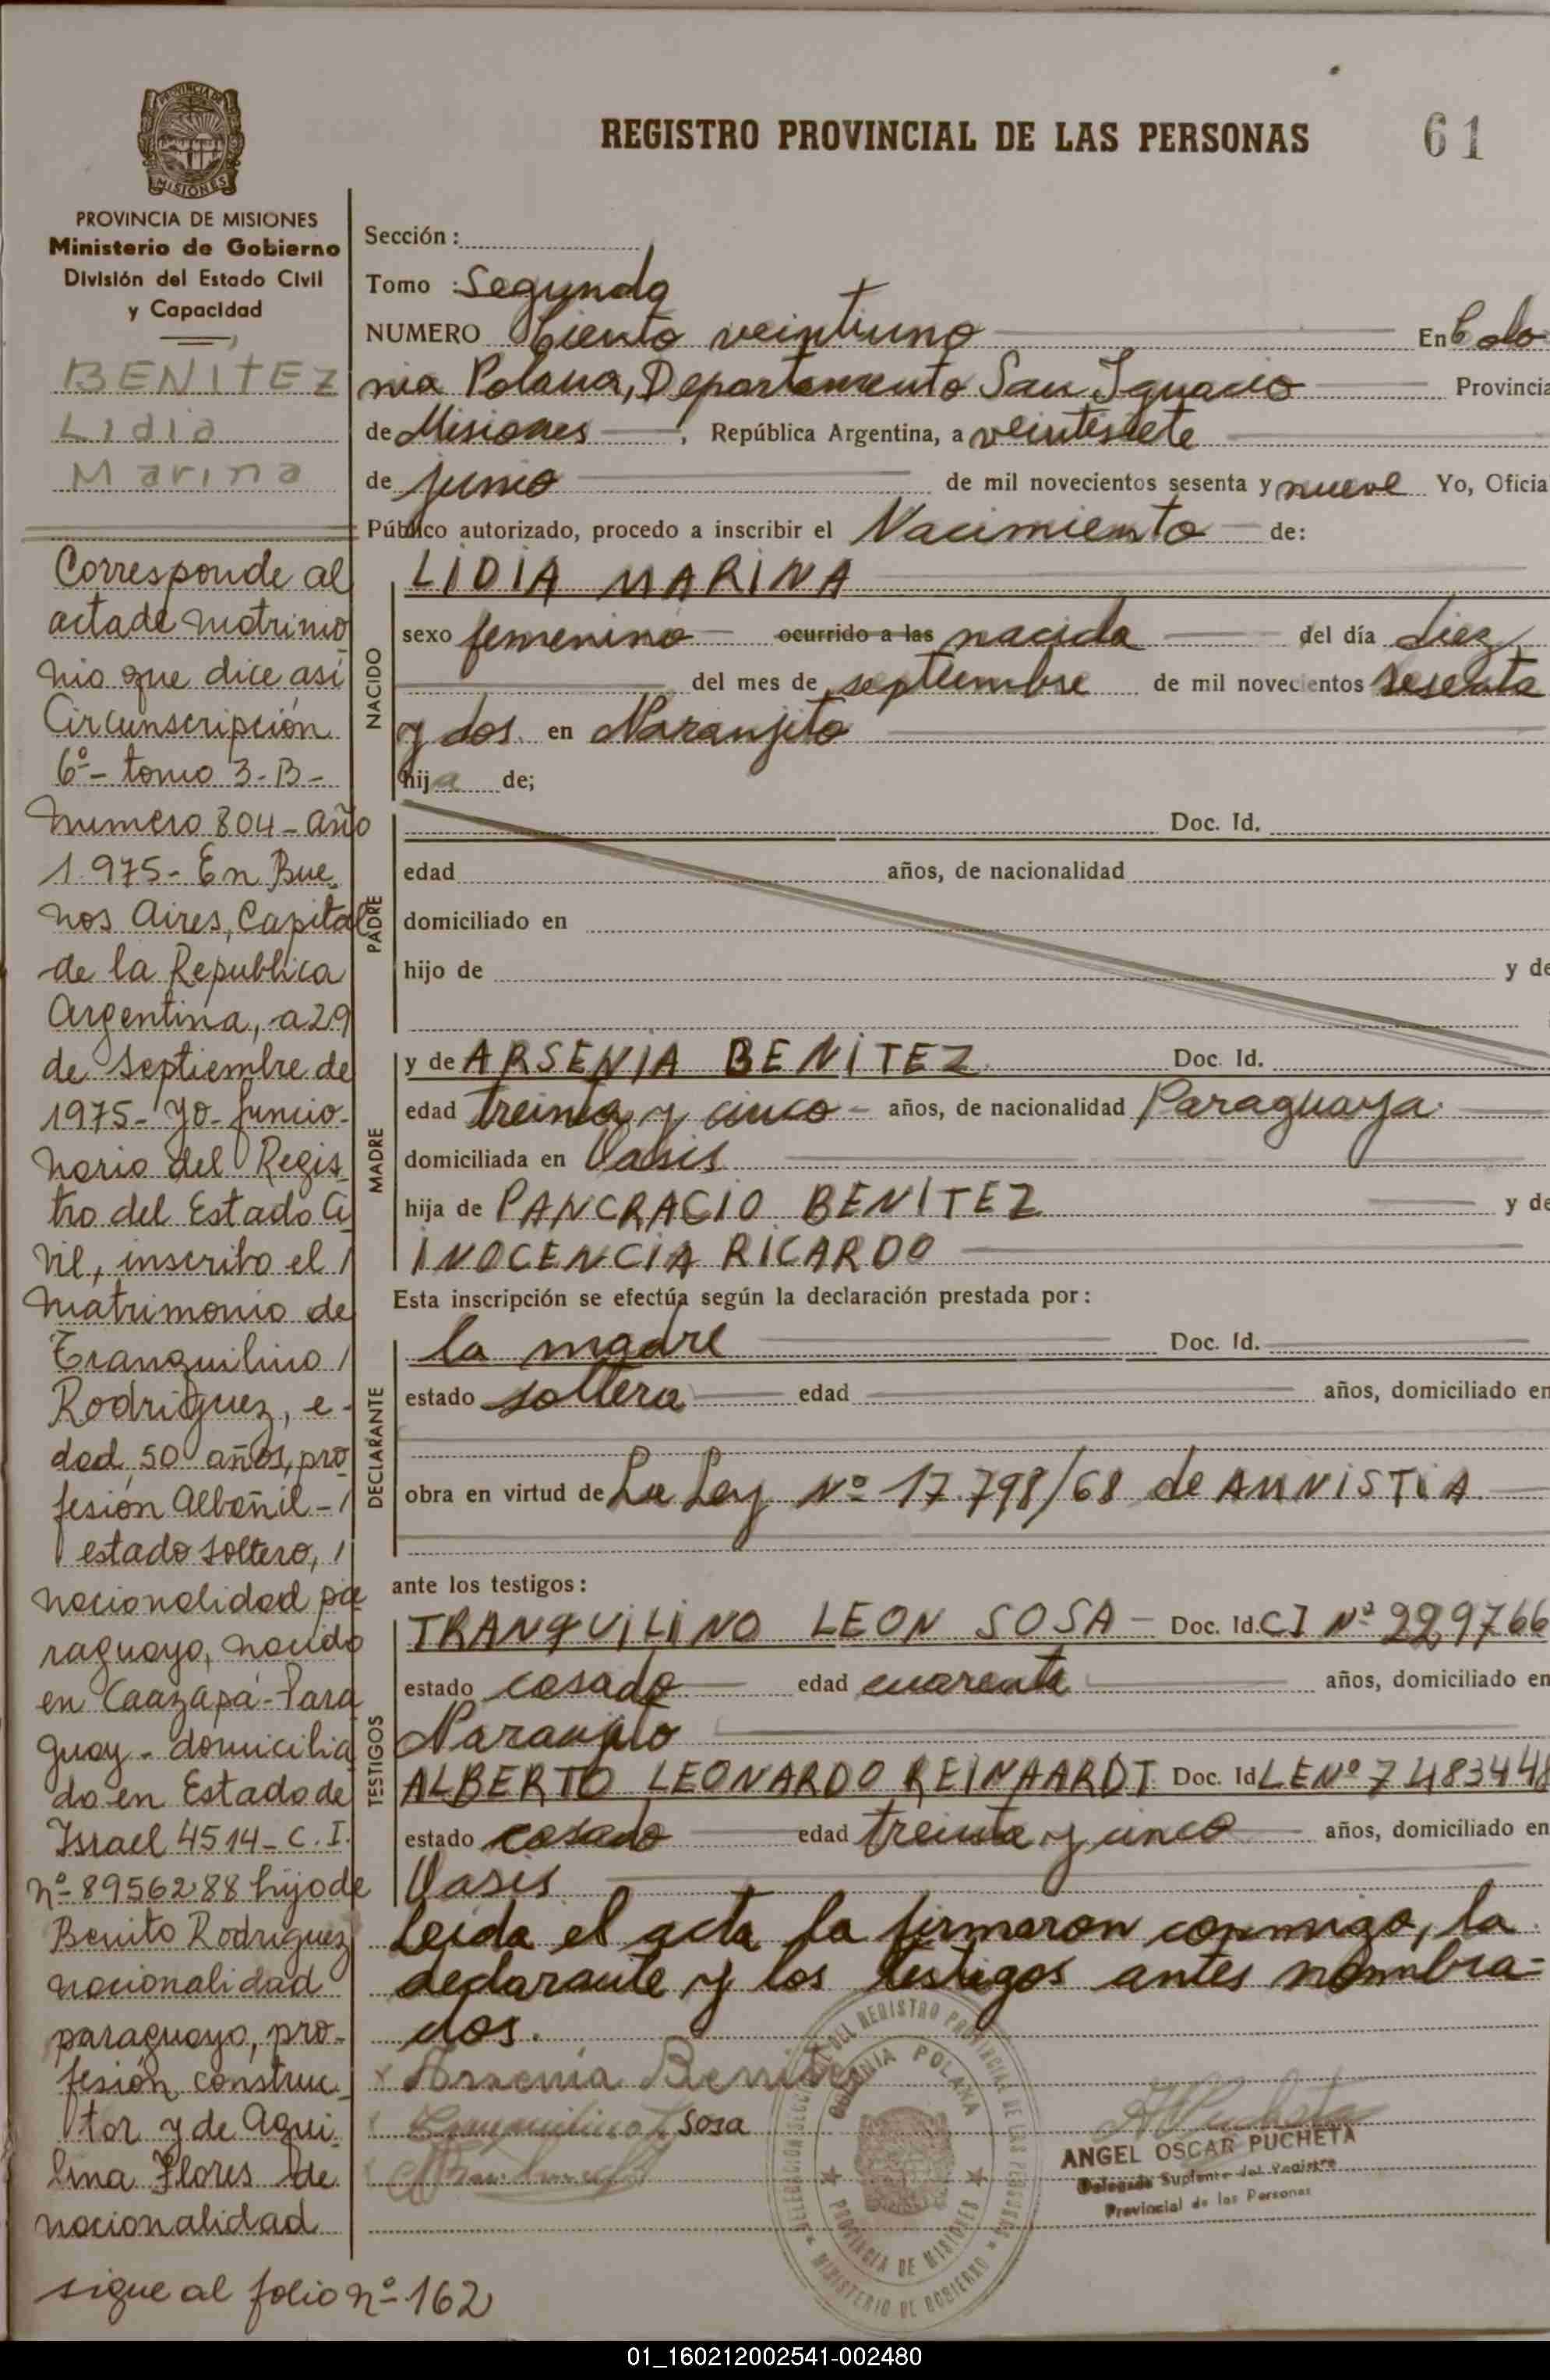 REGISTRO PROVINCIAL DE LAS PERSONAS
61
PROVINCIA DE MISIONES
Ministerio de Gobierno
División del Estado Civil
y Capacidad
BENITEZ
Lidia
Marina
Corresponde al
acta de matrimo
nio que dice así
Circunscripción
6º - tomo 3-B-
numero 804 - año
1.975 - En Bue
nos Aires, Capital
de la Republica
Argentina, a 29
de septiembre de
1975 - yo - funcio-
nario del Regis
tro del Estado Ci
vil, inscribo el /
matrimonio de
Tranquilino /
Rodriguez, e-
dad 50 años, pro
fesión Albañil - /
estado soltero, /
nacionalidad pa
raguayo, nacido
en Caazapá - Para
guay - domicilia
do en Estado de
Israel 4514 - C. I.
nº 8956288 hijo de
Benito Rodriguez
nacionalidad
paraguayo, pro-
fesión construc
tor y de Aqui
lina Flores de
nacionalidad
sigue al folio nº 162
Sección :
Tomo : Segundo
NUMERO Ciento veintiuno En Colo
nia Polana, Departamento San Ignacio Provincia
de Misiones , República Argentina, a veintisiete
de junio de mil novecientos sesenta y nueve Yo, Oficia
Público autorizado, procedo a inscribir el Nacimiento de:
NACIDO
LIDIA MARINA
sexo femenino ocurrido a las nacida del día diez
del mes de septiembre de mil novecientos sesenta
y dos en Naranjito
hija de;
PADRE
Doc. Id.
edad años, de nacionalidad
domiciliado en
hijo de y de
MADRE
y de ARSENIA BENITEZ Doc. Id.
edad treinta y cinco - años, de nacionalidad Paraguaya
domiciliada en Oasis
hija de PANCRACIO BENITEZ y de
INOCENCIA RICARDO
Esta inscripción se efectúa según la declaración prestada por:
DECLARANTE
la madre Doc. Id.
estado soltera edad años, domiciliado en
obra en virtud de La Ley Nº 17.798/68 de AMNISTIA
ante los testigos:
TESTIGOS
TRANQUILINO LEON SOSA - Doc. Id. CI Nº 229766
estado casado edad cuarenta años, domiciliado en
Naranjito
ALBERTO LEONARDO REINAARDT Doc. Id LE Nº 7483448
estado casado edad treinta y cinco años, domiciliado en
Oasis
Leida el acta la firmaron conmigo, la
declarante y los testigos antes nombra-
dos.
x Arsenia Benitez
Sosa
ANGEL OSCAR PUCHETA
Delegado Suplente del Registro
Provincial de las Personas
DEL REGISTRO PROVINCIAL DE LAS PERSONAS
COLONIA POLANA
PROVINCIA DE MISIONES
MINISTERIO DE GOBIERNO
01_160212002541-002480